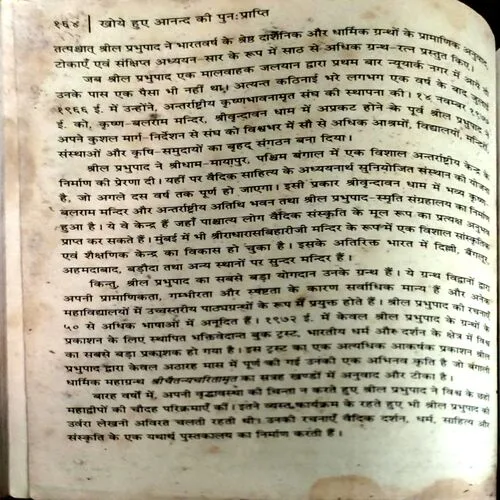 १६४ | खोये हुए आनन्द की पुन:प्राप्ति
तत्पश्चात् श्रील प्रभुपाद ने भारतवर्ष के श्रेष्ठ दार्शनिक और धार्मिक ग्रन्थों के प्रामाणिक अनुवाद,
टीकाएँ एवं संक्षिप्त अध्ययन-सार के रूप में साठ से अधिक ग्रन्थ-रत्न प्रस्तुत किए।
जब श्रील प्रभुपाद एक मालवाहक जलयान द्वारा प्रथम बार न्यूयार्क नगर में आये तो
उनके पास एक पैसा भी नहीं था। अत्यन्त कठिनाई भरे लगभग एक वर्ष के बाद जुलाई
१९६६ ई. में उन्होंने, अन्तर्राष्ट्रीय कृष्णभावनामृत संघ की स्थापना की। १४ नवम्बर १९७७
ई. को, कृष्ण-बलराम मन्दिर, श्रीवृन्दावन धाम में अप्रकट होने के पूर्व श्रील प्रभुपाद ने
अपने कुशल मार्ग-निर्देशन से संघ को विश्वभर में सौ से अधिक आश्रमों, विद्यालयों, मन्दिरों,
संस्थाओं और कृषि-समुदायों का बृहद् संगठन बना दिया।
श्रील प्रभुपाद ने श्रीधाम-मायापुर, पश्चिम बंगाल में एक विशाल अन्तर्राष्ट्रीय केन्द्र के
निर्माण की प्रेरणा दी। यहीं पर वैदिक साहित्य के अध्ययनार्थ सुनियोजित संस्थान की योजना
है, जो अगले दस वर्ष तक पूर्ण हो जाएगा। इसी प्रकार श्रीवृन्दावन धाम में भव्य कृष्ण-
बलराम मन्दिर और अन्तर्राष्ट्रीय अतिथि भवन तथा श्रील प्रभुपाद-स्मृति संग्रहालय का निर्माण
हुआ है। ये वे केन्द्र हैं जहाँ पाश्चात्य लोग वैदिक संस्कृति के मूल रूप का प्रत्यक्ष अनुभव
प्राप्त कर सकते हैं। मुंबई में भी श्रीराधारासबिहारीजी मन्दिर के रूप में एक विशाल सांस्कृतिक
एवं शैक्षणिक केन्द्र का विकास हो चुका है। इसके अतिरिक्त भारत में दिल्ली, बैंगलूर,
अहमदाबाद, बड़ौदा तथा अन्य स्थानों पर सुन्दर मन्दिर हैं।
किन्तु, श्रील प्रभुपाद का सबसे बड़ा योगदान उनके ग्रन्थ हैं। ये ग्रन्थ विद्वानों द्वारा
अपनी प्रामाणिकता, गम्भीरता और स्पष्टता के कारण सर्वाधिक मान्य हैं और अनेक
महाविद्यालयों में उच्चस्तरीय पाठ्यग्रन्थों के रूप में प्रयुक्त होते हैं। श्रील प्रभुपाद की रचनाएँ
५० से अधिक भाषाओं में अनूदित हैं। १९७२ ई. में केवल श्रील प्रभुपाद के ग्रन्थों के
प्रकाशन के लिए स्थापित भक्तिवेदान्त बुक ट्रस्ट, भारतीय धर्म और दर्शन के क्षेत्र में विश्व
का सबसे बड़ा प्रकाशक हो गया है। इस ट्रस्ट का एक अत्यधिक आकर्षक प्रकाशन श्रील
प्रभुपाद द्वारा केवल अठारह मास में पूर्ण की गई उनकी एक अभिनव कृति है जो बंगाली
धार्मिक महाग्रन्थ श्रीचैतन्यचरितामृत का सत्रह खण्डों में अनुवाद और टीका है।
बारह वर्षों में, अपनी वृद्धावस्था की चिन्ता न करते हुए श्रील प्रभुपाद ने विश्व के छहों
महाद्वीपों की चौदह परिक्रमाएँ कीं। इतने व्यस्त कार्यक्रम के रहते हुए भी श्रील प्रभुपाद की
उर्वरा लेखनी अविरत चलती रहती थी। उनकी रचनाएँ वैदिक दर्शन, धर्म, साहित्य और
संस्कृति के एक यथार्थ पुस्तकालय का निर्माण करती हैं।